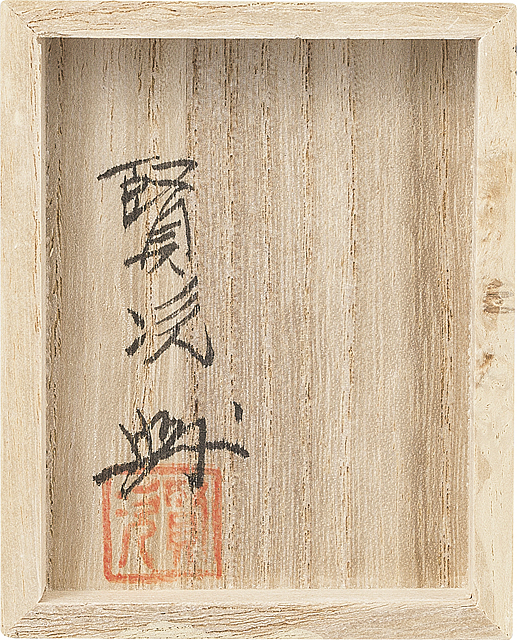 賢次
賢次